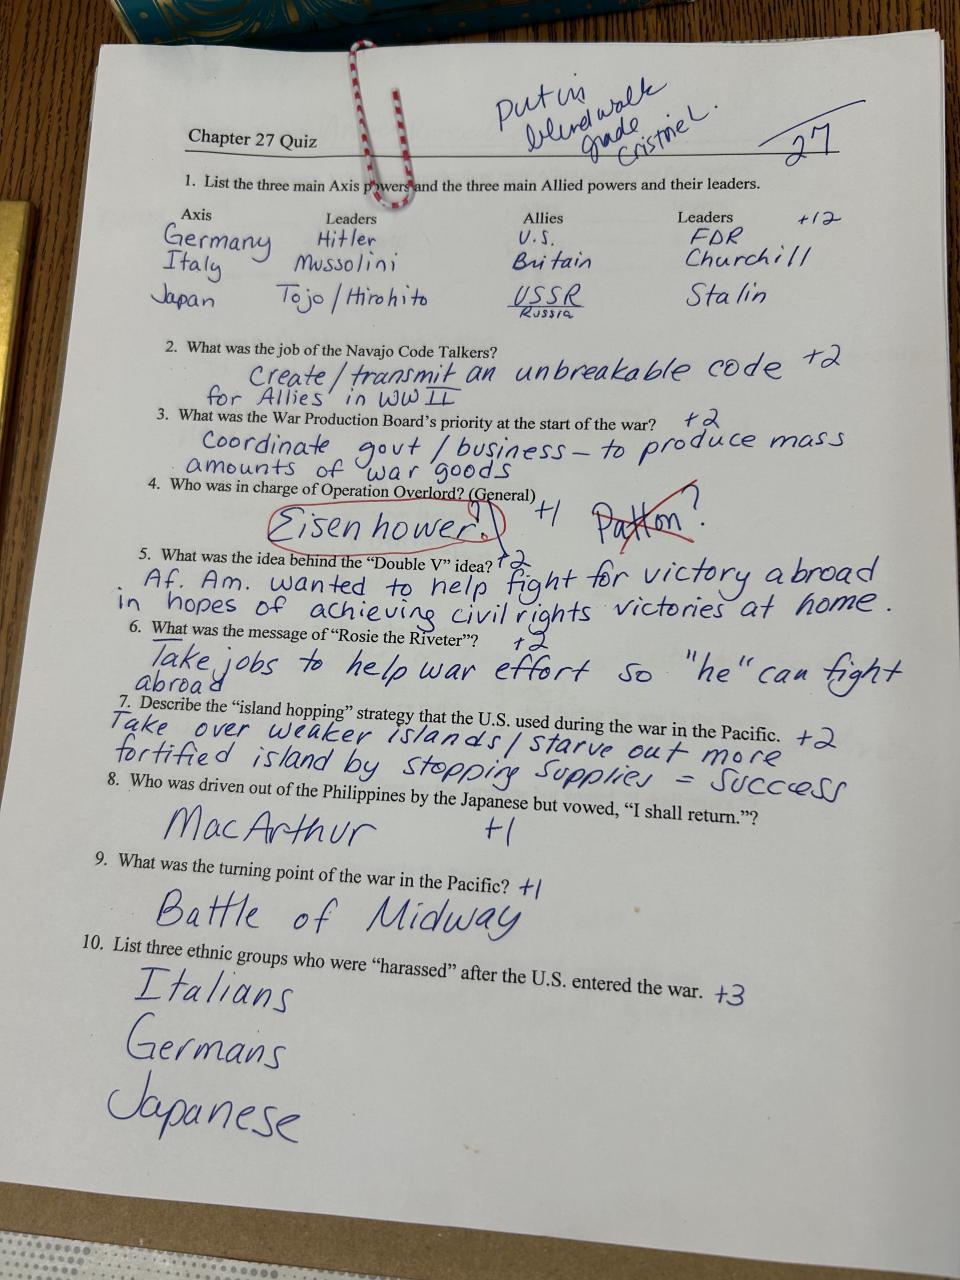 Put in
blind walk
grade
Cristriel.
Chapter 27 Quiz
27
1. List the three main Axis powers and the three main Allied powers and their leaders.
Axis Leaders Allies Leaders +12
Germany Hitler U.S. FDR
Italy Mussolini Britain Churchill
Japan Tojo/Hirohito USSR Stalin
Russia
2. What was the job of the Navajo Code Talkers?
Create/transmit an unbreakable code +2
for Allies in WWII
3. What was the War Production Board's priority at the start of the war? +2
Coordinate govt/business – to produce mass
amounts of war goods
4. Who was in charge of Operation Overlord? (General)
Eisenhower? +1 Patton?
5. What was the idea behind the "Double V" idea? +2
Af. Am. wanted to help fight for victory abroad
in hopes of achieving civil rights victories at home.
6. What was the message of "Rosie the Riveter"? +2
Take jobs to help war effort so "he" can fight
abroad
7. Describe the "island hopping" strategy that the U.S. used during the war in the Pacific. +2
Take over weaker islands/starve out more
fortified island by stopping supplies = success
8. Who was driven out of the Philippines by the Japanese but vowed, "I shall return."?
MacArthur +1
9. What was the turning point of the war in the Pacific? +1
Battle of Midway
10. List three ethnic groups who were "harassed" after the U.S. entered the war. +3
Italians
Germans
Japanese